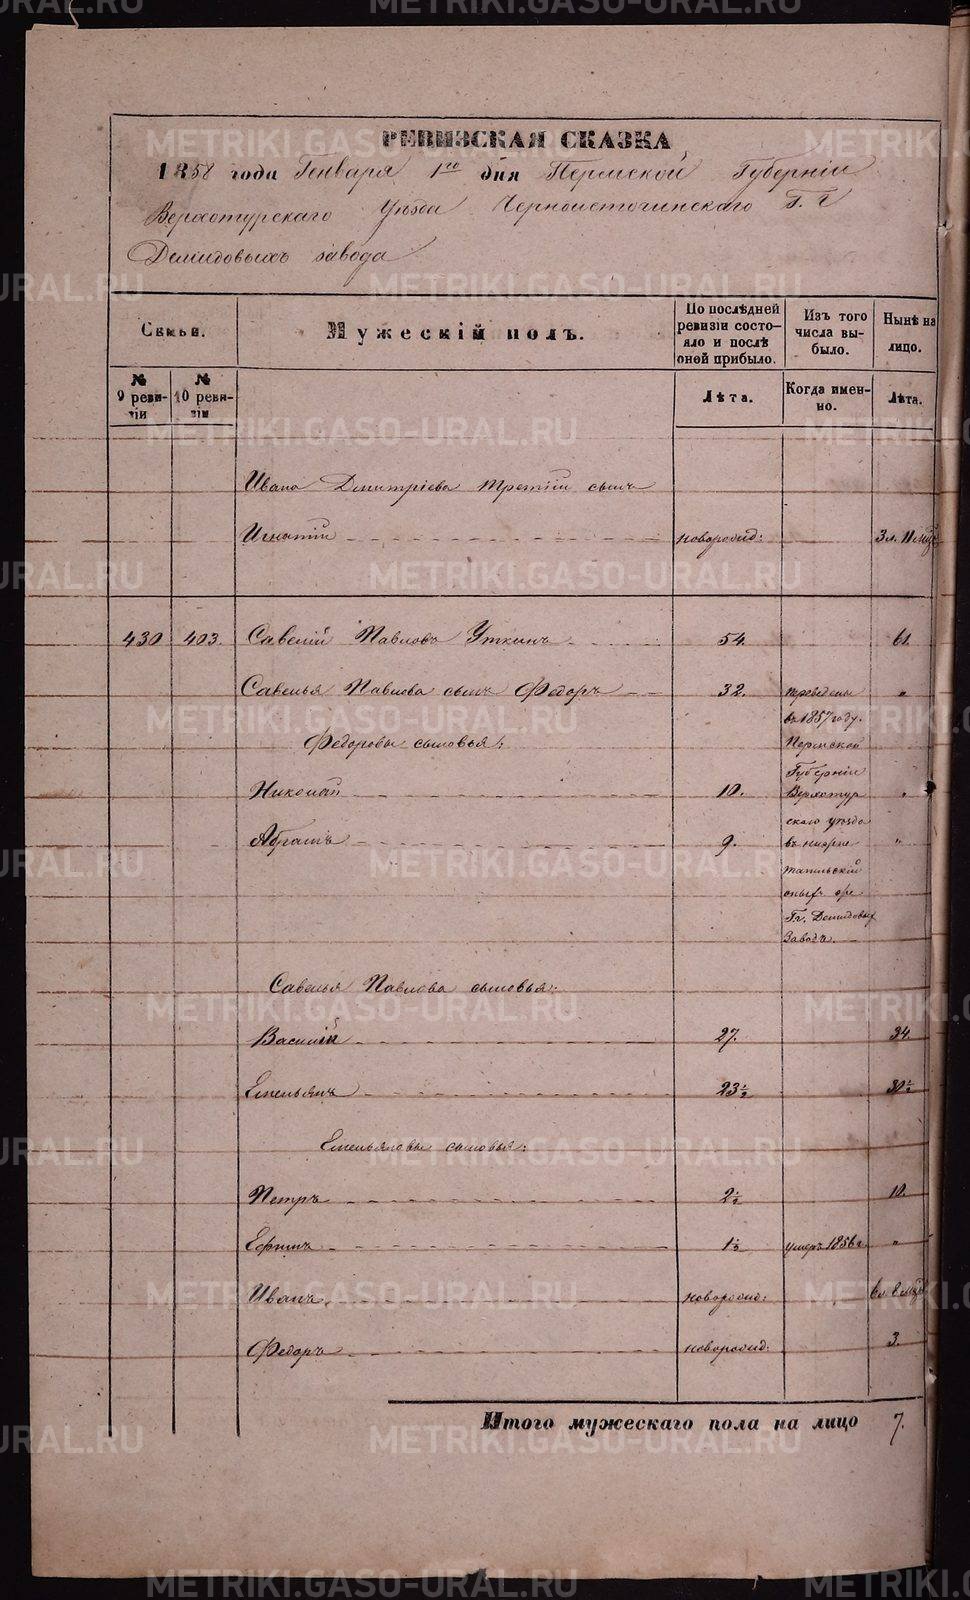 РЕВИЗСКАЯ СКАЗКА
1858 года Генваря 1го дня Пермской Губерніи
Верхотурскаго Уѣзда Черноисточинскаго Г. Г
Демидовыхъ завода
Семьи.
Мужескій полъ.
По послѣдней ревизіи состояло и послѣ оной прибыло.
Изъ того числа выбыло.
Нынѣ на лицо.
№ 9 ревизіи
№ 10 ревизіи
Лѣта.
Когда именно.
Лѣта.
Ивана Дмитріева третій сынъ
Игнатій новорожд: 3 л. 11 мцъ
430 403. Савелій Павловъ Уткинъ 54. 61.
Савелья Павлова сынъ Федоръ 32. переведены "
въ 1857 году.
Федоровы сыновья: Пермской
Губерніи
Николай 10. Верхотур "
скаго уѣзда
Абрамъ 9. въ нижне "
тагильскій
Гг. Демидовыхъ
Заводъ.
Савелья Павлова сыновья:
Василій 27. 34.
Емельянъ 23½ 30½
Емельяновы сыновья:
Петръ 2½ 10.
Ефимъ 1½ умеръ 1856 г. "
Иванъ новорожд: 6 л 8 мцъ
Федоръ новорожд: 3.
Итого мужескаго пола на лицо 7.
METRIKI.GASO-URAL.RU